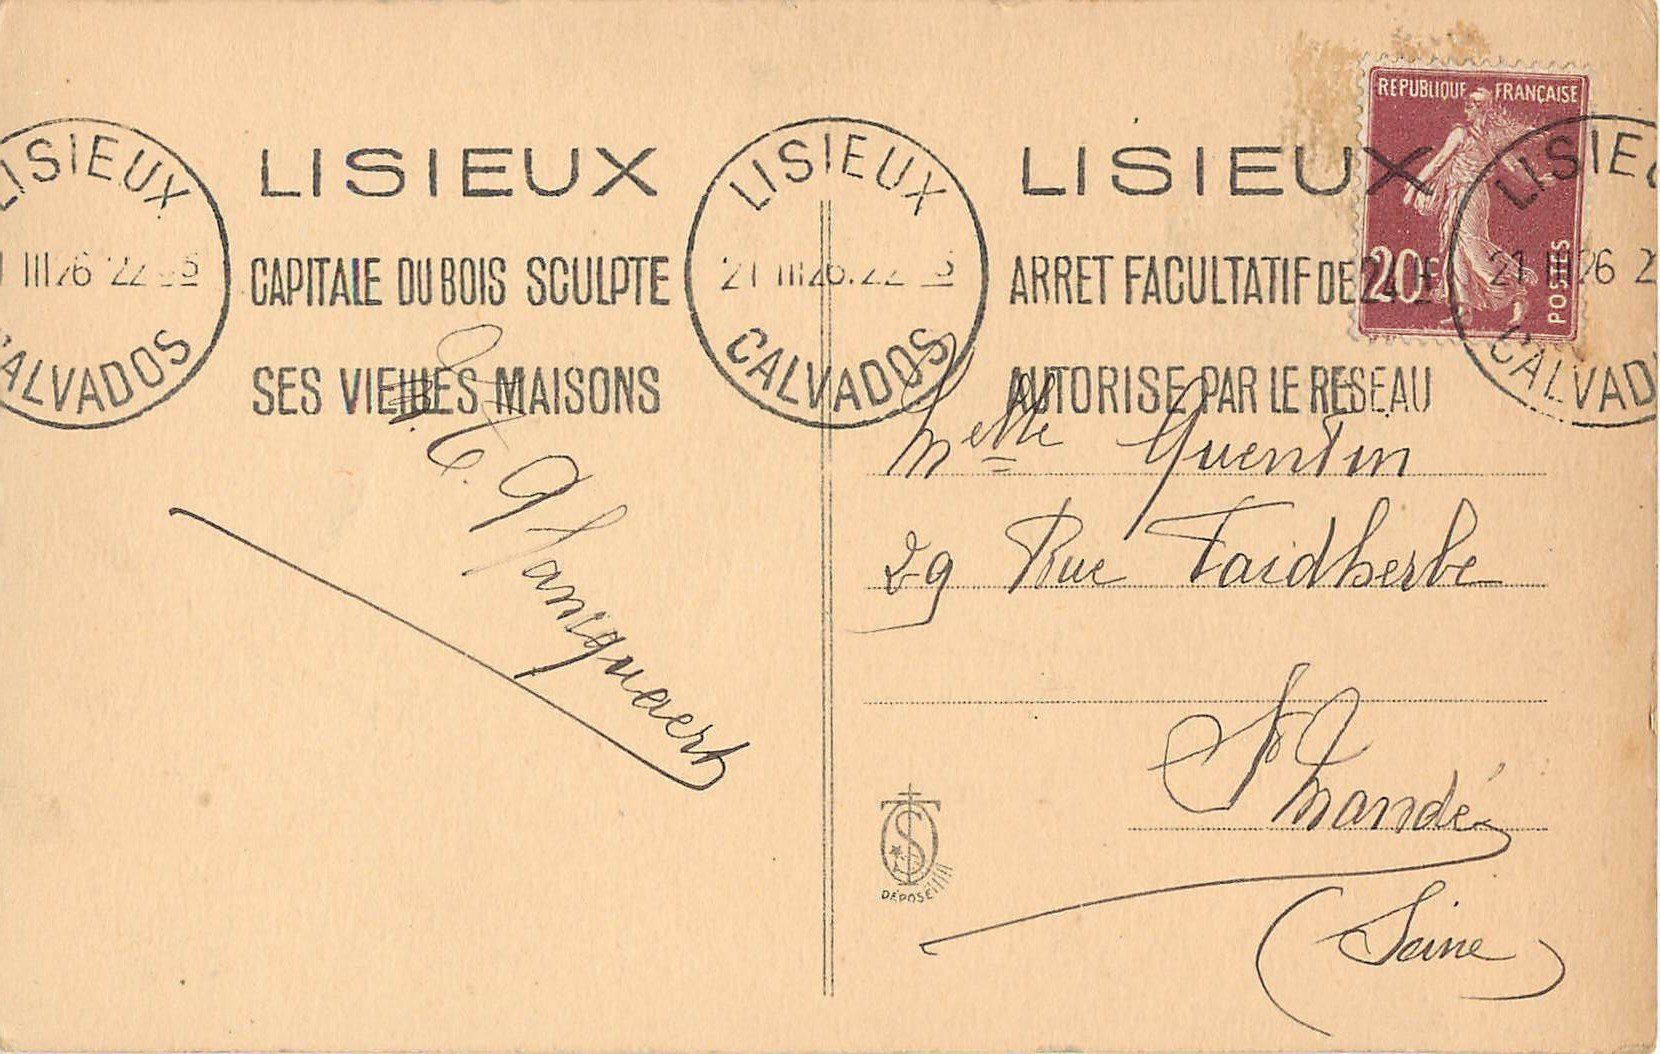 REPUBLIQUE FRANÇAISE
20F
POSTES
LISIEUX
CALVADOS
LISIEUX
CAPITALE DU BOIS SCULPTE
SES VIEILLES MAISONS
LISIEUX
21 III 26. 22
CALVADOS
LISIEUX
ARRET FACULTATIF DE 24 H
AUTORISE PAR LE RESEAU
LISIEU
21 III 26 2
CALVAD
Melle Quentin
29 Rue Faidherbe
St Mandé
(Seine)
DÉPOSÉ